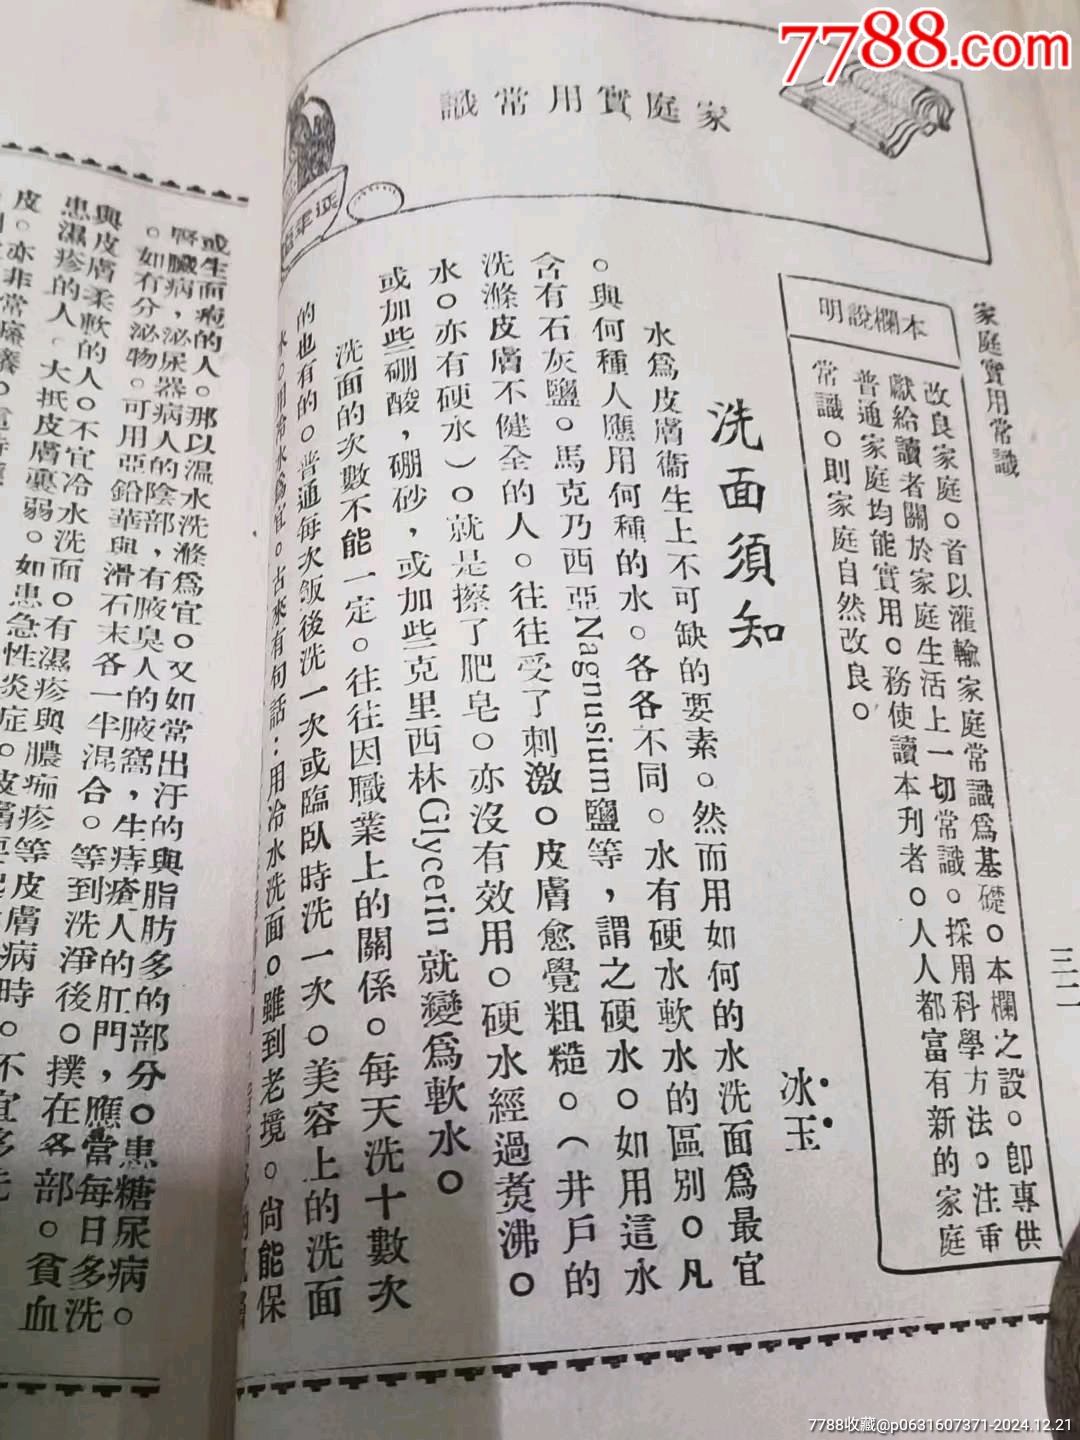 7788.com
家庭實用常識
家庭實用常識
三二
本欄說明
改良家庭。首以灌輸家庭常識爲基礎。本欄之設。卽專供
獻給讀者關於家庭生活上一切常識。採用科學方法。注重
普通家庭均能實用。務使讀本刊者。人人都富有新的家庭
常識。則家庭自然改良。
洗面須知
冰玉
水爲皮膚衞生上不可缺的要素。然而用如何的水洗面爲最宜
。與何種人應用何種的水。各各不同。水有硬水軟水的區別。凡
含有石灰鹽。馬克乃西亞Nagnusium鹽等，謂之硬水。如用這水
洗滌皮膚不健全的人。往往受了刺激。皮膚愈覺粗糙。（井戶的
水。亦有硬水）。就是擦了肥皂。亦沒有效用。硬水經過煑沸。
或加些硼酸，硼砂，或加些克里西林Glycerin就變爲軟水。
洗面的次數不能一定。往往因職業上的關係。每天洗十數次
的也有的。普通每次飯後洗一次或臨臥時洗一次。美容上的洗面
水。用冷水爲宜。古來有句話：用冷水洗面。雖到老境。尙能保
或生面疱的人。那以溫水洗滌爲宜。又如常出汗的與脂肪多的部分。患糖尿病。
腎臟病，泌尿器病人的陰部，有腋臭人的腋窩，生痔瘡人的肛門，應當每日多洗
。如有分泌物。可用亞鉛華與滑石末各一半混合。等到洗淨後。撲在各部。貧血
與皮膚柔軟的人。不宜冷水洗面。有濕疹與膿痂疹等皮膚病時。不宜多洗
患濕疹的人。大抵皮膚裏弱。如患急性炎症。皮膚
皮。亦非常癢癢。
7788收藏@p0631607371-2024.12.21